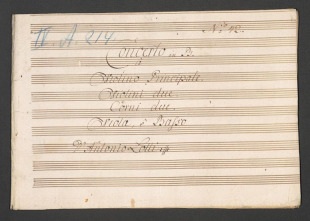 II. A. 214.
No. 42.
Concerto in D.
Violino Principale.
Violini due
Corni due.
Viola, è Basso
D'Antonio Lolli